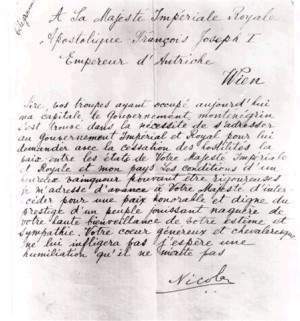 A Sa Majeste Impériale Royale
Apostolique François Joseph I
Empereur d'Autriche
Wien
Sire, vos troupes ayant occupé aujourd'hui
ma capitale, le Gouvernement monténégrin
s'est trouvé dans la nécessité de s'adresser
au Gouvernement Impérial et Royal pour lui
demander avec la cessation des hostilités la
paix entre les états de Votre Majesté Impériale
et Royale et mon pays. Les conditions d'un
heureux vainqueur pouvant être rigoureuses
je m'adresse d'avance à Votre Majesté d'inter-
céder pour une paix honorable et digne du
prestige d'un peuple jouissant naguère de
votre haute bienveillance de votre estime et
sympathie. Votre coeur généreux et chevaleresque
ne lui infligera pas j'espère une
humiliation qu'il ne mérite pas
Nicolas